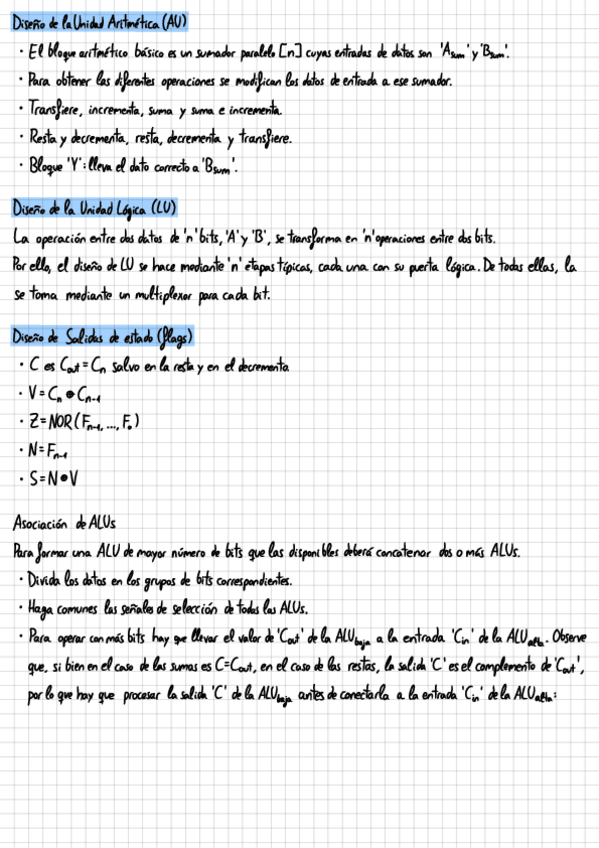 Diseño de la Unidad Aritmética (AU)
· El bloque aritmético básico es un sumador paralelo [n] cuyas entradas de datos son 'Asum' y 'Bsum'.
· Para obtener las diferentes operaciones se modifican los datos de entrada a ese sumador.
· Transfiere, incrementa, suma y suma e incrementa.
· Resta y decrementa, resta, decrementa y transfiere.
· Bloque 'Y': lleva el dato correcto a 'Bsum'.
Diseño de la Unidad Lógica (LU)
La operación entre dos datos de 'n' bits, 'A' y 'B', se transforma en 'n' operaciones entre dos bits.
Por ello, el diseño de LU se hace mediante 'n' etapas típicas, cada una con su puerta lógica. De todas ellas, la
se toma mediante un multiplexor para cada bit.
Diseño de Salidas de estado (flags)
· C es Cout = Cn salvo en la resta y en el decrementa
· V = Cn ⊕ Cn-1
· Z = NOR (Fn-1, ..., F0)
· N = Fn-1
· S = N ⊕ V
Asociación de ALUs
Para formar una ALU de mayor número de bits que las disponibles deberá concatenar dos o más ALUs.
· Divida los datos en los grupos de bits correspondientes.
· Haga comunes las señales de selección de todas las ALUs.
· Para operar con más bits hay que llevar el valor de 'Cout' de la ALUbaja a la entrada 'Cin' de la ALUalta. Observe
que, si bien en el caso de las sumas es C=Cout, en el caso de las restas, la salida 'C' es el complemento de 'Cout',
por lo que hay que procesar la salida 'C' de la ALUbaja antes de conectarla a la entrada 'Cin' de la ALUalta: